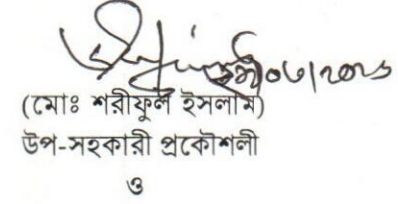 (মোঃ শরীফুল ইসলাম)
উপ-সহকারী প্রকৌশলী
ও